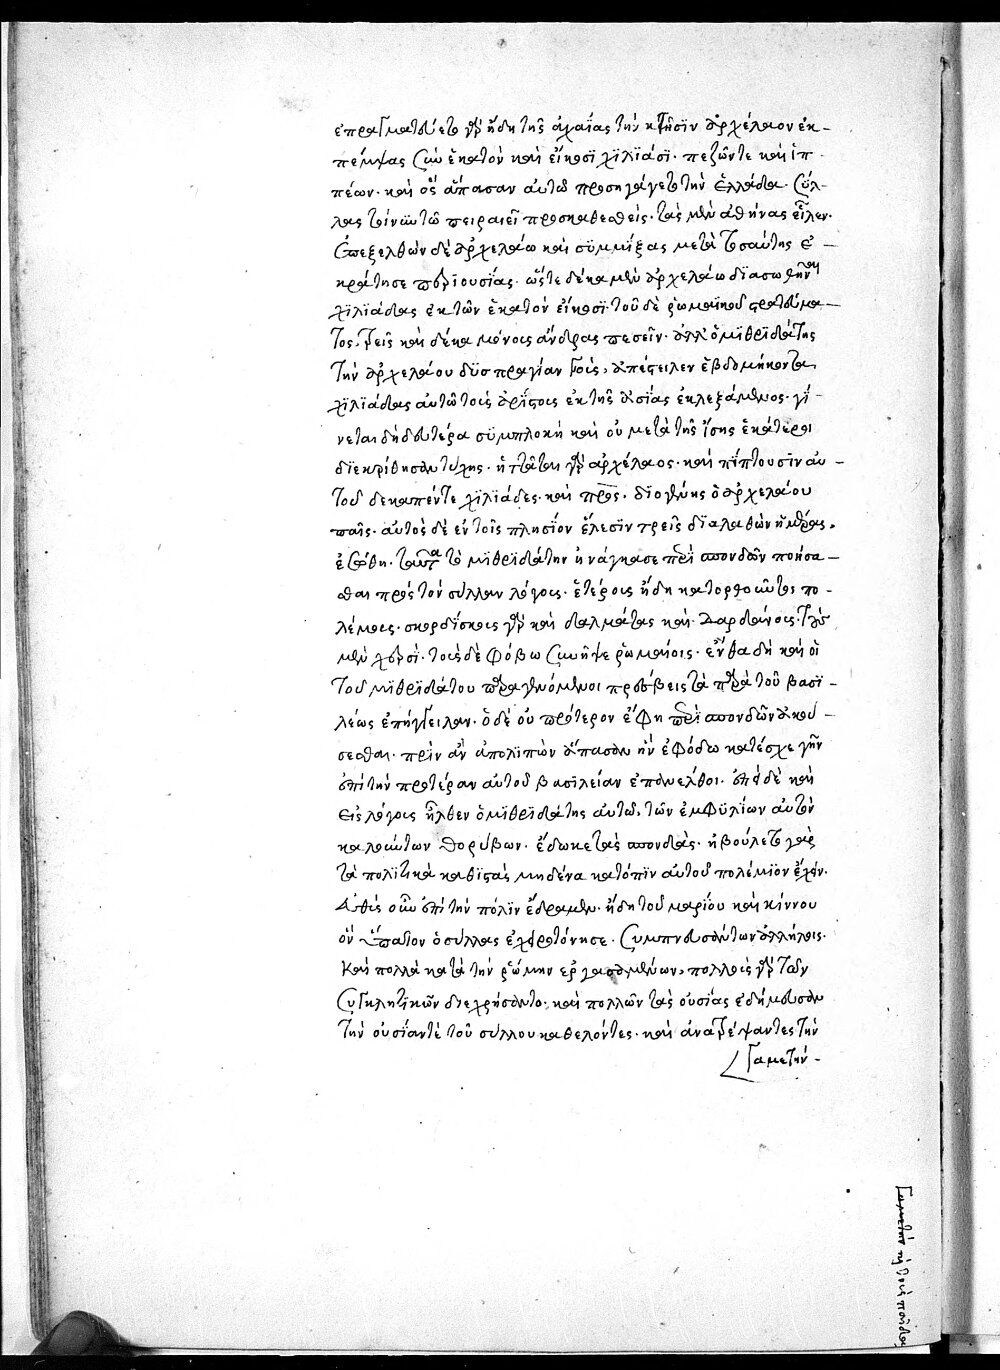 ἐπραγματεύετο γὰρ ἤδη τῆς ἀχαΐας τὴν κτῆσιν ἀρχέλαον ἐκ-
πέμψας σὺν ἑκατὸν καὶ εἴκοσι χιλιάσι· πεζῶντε καὶ ἱπ-
πέων· καὶ ὃς ἅπασαν αὐτῶ προσηγάγετο τὴν ἑλλάδα· σύλ-
λας τοίνυν τῶ πειραιεῖ προσκαθεσθείς· τὰς μὲν ἀθήνας εἷλεν·
ἐπεξελθὼν δὲ ἀρχελάω καὶ συμμίξας μετὰ τοσαύτης ἐ-
κράτησε περιουσίας· ὥστε δέκα μὲν ἀρχελάω διασωθῆναι
χιλιάδας ἐκ τῶν ἑκατὸν εἴκοσι· τοῦ δὲ ῥωμαϊκοῦ στρατεύμα-
τος, τρεῖς καὶ δέκα μόνους ἄνδρας πεσεῖν· ἀλλ' ὁ μιθριδάτης
τὴν ἀρχελάου δυσπραγίαν γνούς, ἀπέστειλεν ἑβδομήκοντα
χιλιάδας αὐτῶ τοὺς ἀρίστους ἐκ τῆς ἀσίας ἐκλεξάμενος· γί-
νεται δὴ δευτέρα συμπλοκὴ καὶ οὐ μετὰ τῆς ἴσης ἑκάτεροι
διεκρίθησαν τύχης· ἡττᾶται γὰρ ἀρχέλαος· καὶ πίπτουσιν αὐ-
τοῦ δεκαπέντε χιλιάδες· καὶ πρὸς, διογένης ὁ ἀρχελάου
παῖς· αὐτὸς δὲ ἐν τοῖς πλησίον ἕλεσιν τρεῖς διαλαθὼν ἡμέρας,
ἐσώθη· ταῦτα τὸ μιθριδάτην ἠνάγκασε περὶ σπονδῶν ποιήσα-
σθαι πρὸς τὸν σύλλαν λόγους· ἑτέρους ἤδη κατορθοῦντος πο-
λέμους· σκορδίσκους γὰρ καὶ δαλμάτας καὶ δαρδάνους· τοὺς
μὲν χερσὶ· τοὺς δὲ φόβω συνῆψε ῥωμαίοις· ἔνθα δὴ καὶ οἱ
τοῦ μιθριδάτου παραγενόμενοι πρέσβεις τὰ παρὰ τοῦ βασι-
λέως ἐπήγγειλαν· ὁ δὲ οὐ πρότερον ἔφη περὶ σπονδῶν ἀκού-
σεσθαι· πρὶν ἂν ἀπολιπὼν ἅπασαν ἣν ἐφόδω κατέσχε γῆν
ἐπὶ τὴν προτέραν αὐτοῦ βασιλείαν ἐπανέλθοι· ἐπεὶ δὲ καὶ
εἰς λόγους ἦλθεν ὁ μιθριδάτης αὐτῶ, τῶν ἐμφυλίων αὐτὸν
καλούντων θορύβων· ἔδωκε τὰς σπονδὰς· ἠβούλετο γὰρ
τὰ πολιτικὰ καθιστὰς μηδένα κατόπιν αὐτοῦ πολέμιον ἔχειν·
αὖθις οὖν ἐπὶ τὴν πόλιν ἔδραμεν· ἤδη τοῦ μαρίου καὶ κίννου
ὃν ὕπατον ὁ σύλλας ἐχειροτόνησε· συμπνευσάντων ἀλλήλοις·
καὶ πολλὰ κατὰ τὴν ῥώμην ἐργασαμένων, πολλοὺς γὰρ τῶν
συγκλητικῶν διεχρήσαντο· καὶ πολλῶν τὰς οὐσίας ἐδήμευσαν
τὴν οὐσίαν τὲ τοῦ σύλλου καθελόντες· καὶ ἀνατρέψαντες τὴν
γαμετὴν-
γαμετὴν κ τοὺς παῖδας